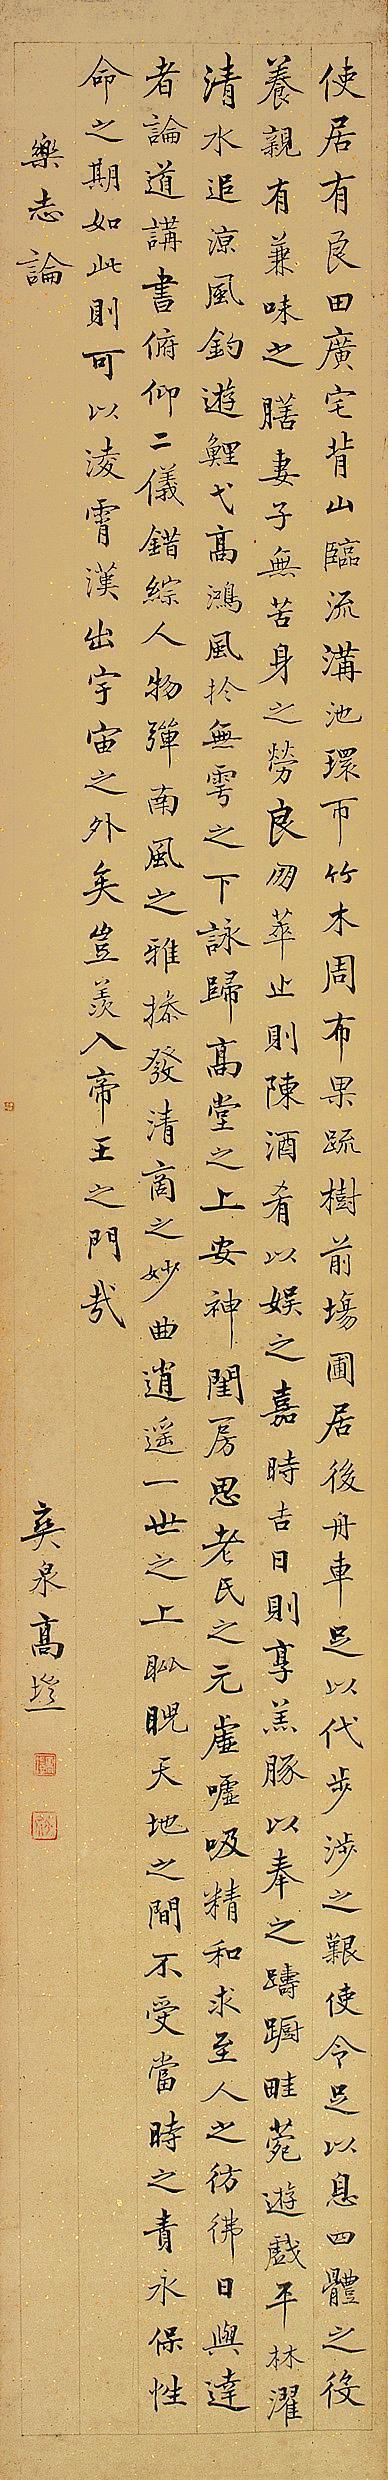 使居有良田廣宅背山臨流溝池環帀竹木周布果蔬樹前場圃居後舟車足以代步涉之艱使令足以息四體之役
養親有兼味之膳妻子無苦身之勞良朋萃止則陳酒肴以娛之嘉時吉日則亨羔豚以奉之躊躕畦菀遊戲平林濯
清水追涼風釣遊鯉弋高鴻風於無雩之下詠歸高堂之上安神閨房思老氏之元虛噓吸精和求至人之彷彿日與達
者論道講書俯仰二儀錯綜人物彈南風之雅操發清商之妙曲逍遥一世之上睥睨天地之間不受當時之責永保性
命之期如此則可以淩霄漢出宇宙之外矣豈羨入帝王之門哉
樂志論
奕泉高塏